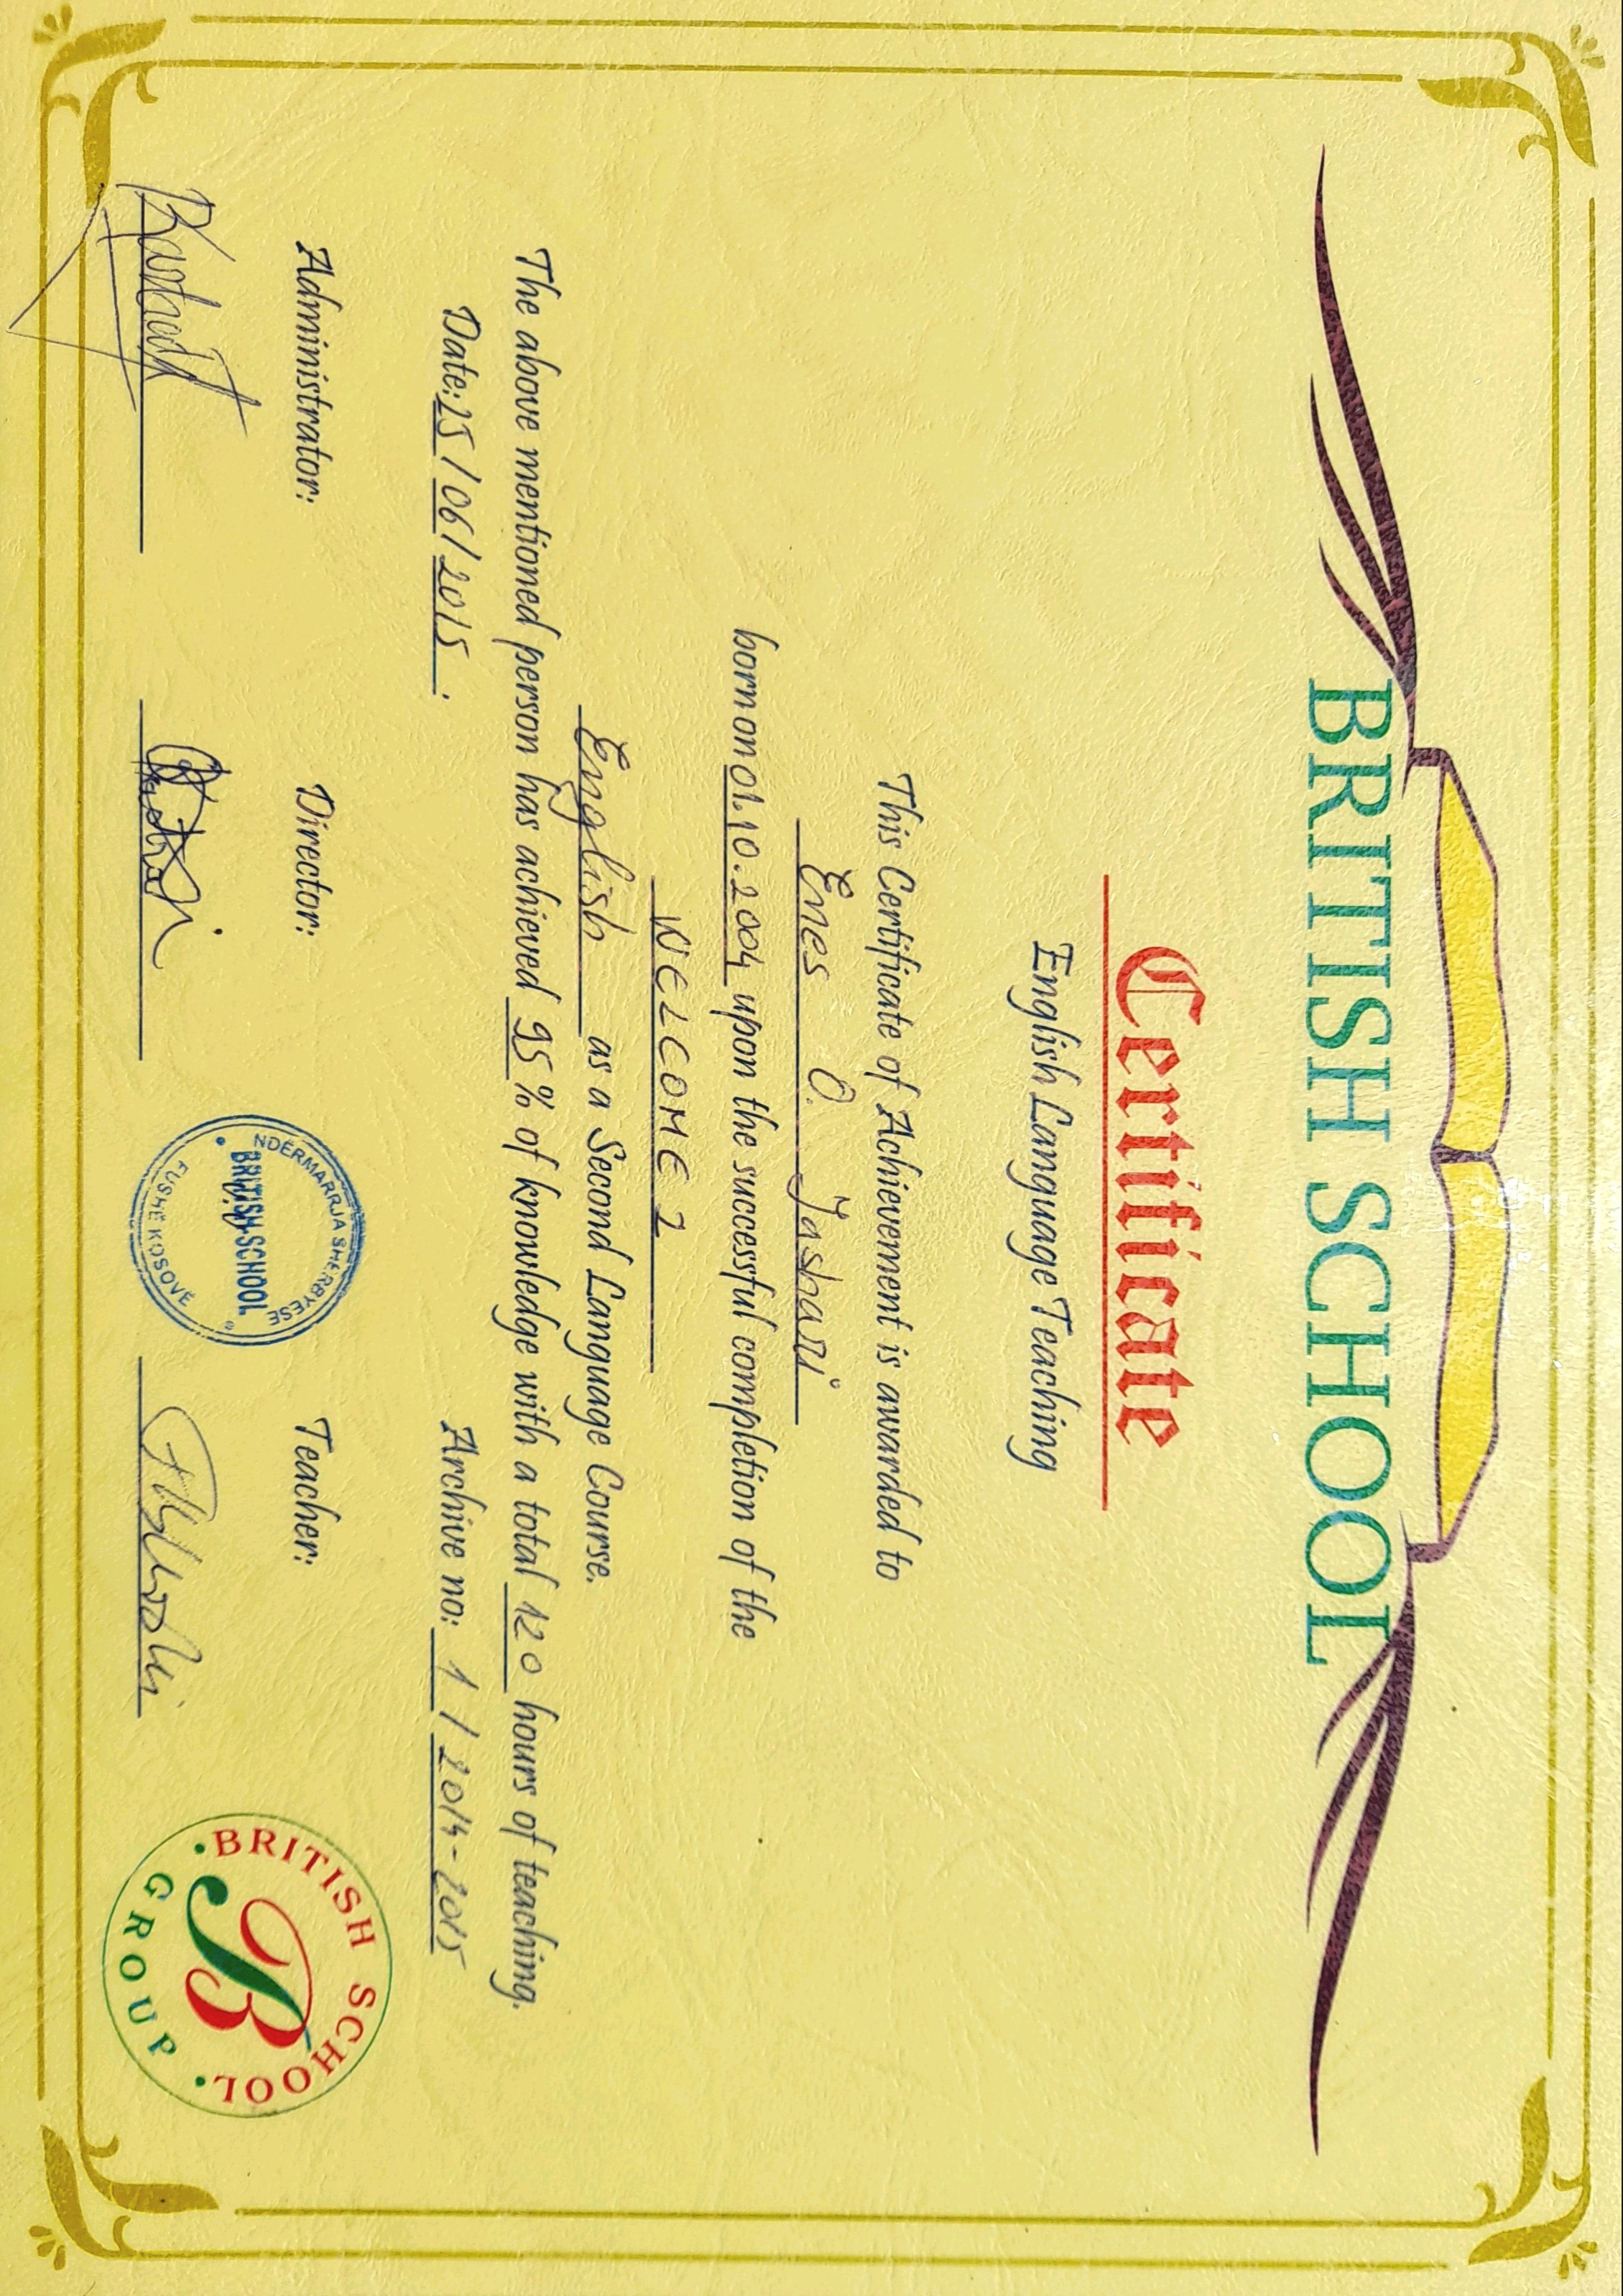 BRITISH SCHOOL
Certificate
English Language Teaching
This Certificate of Achievement is awarded to
Enes O. Jashari
born on 01.10.2004 upon the successful completion of the
WELCOME 2
English as a Second Language Course.
The above mentioned person has achieved 95% of knowledge with a total 120 hours of teaching.
Date: 25/06/2015.
Archive no: 1 / 2014-2015
Administrator:
Director:
Teacher:
NDËRMARRJA SHËRBYESE
BRITISH-SCHOOL
FUSHË KOSOVË
BRITISH SCHOOL
B
GROUP